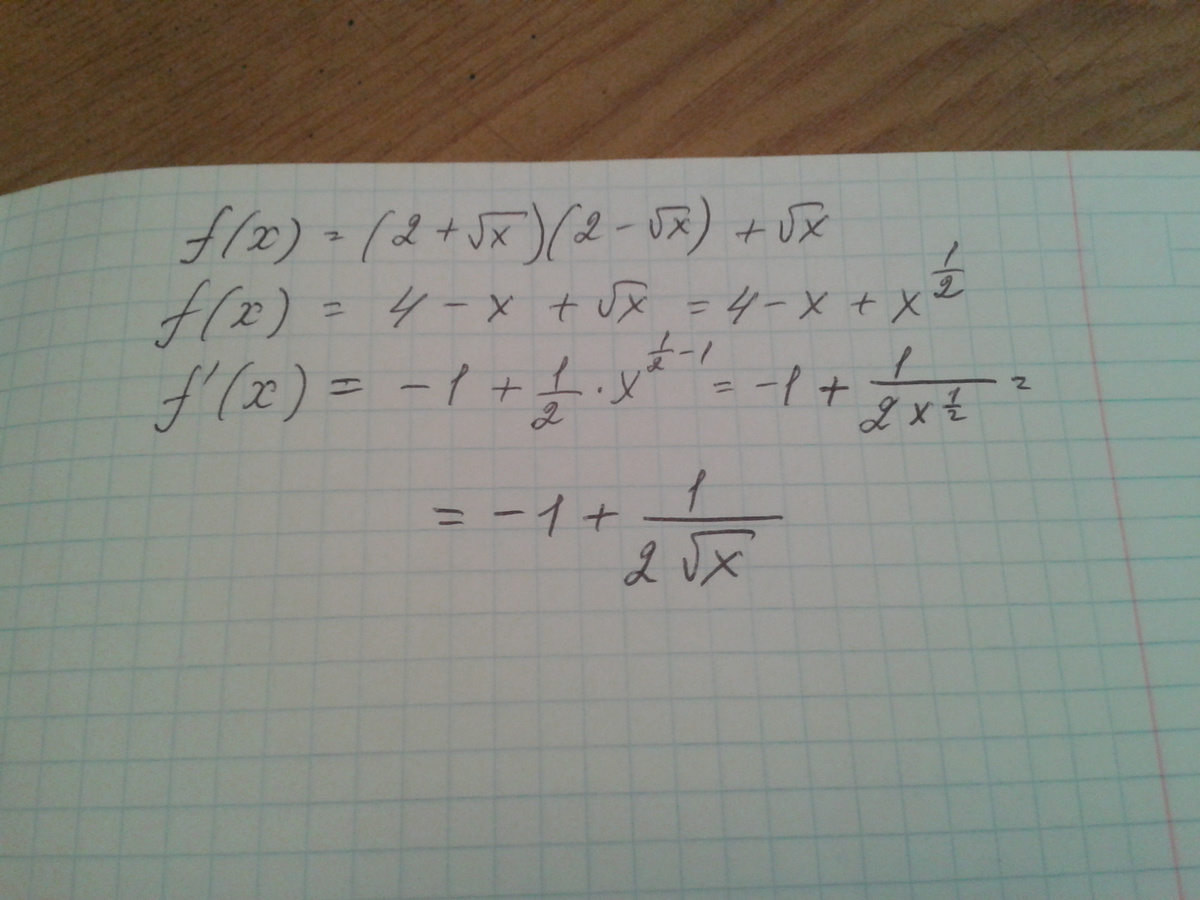 f(x) = (2 + √x)(2 - √x) + √x
f(x) = 4 - x + √x = 4 - x + x^(1/2)
f'(x) = -1 + 1/2 · x^(1/2 - 1) = -1 + 1/(2x^(1/2)) =
= -1 + 1/(2√x)